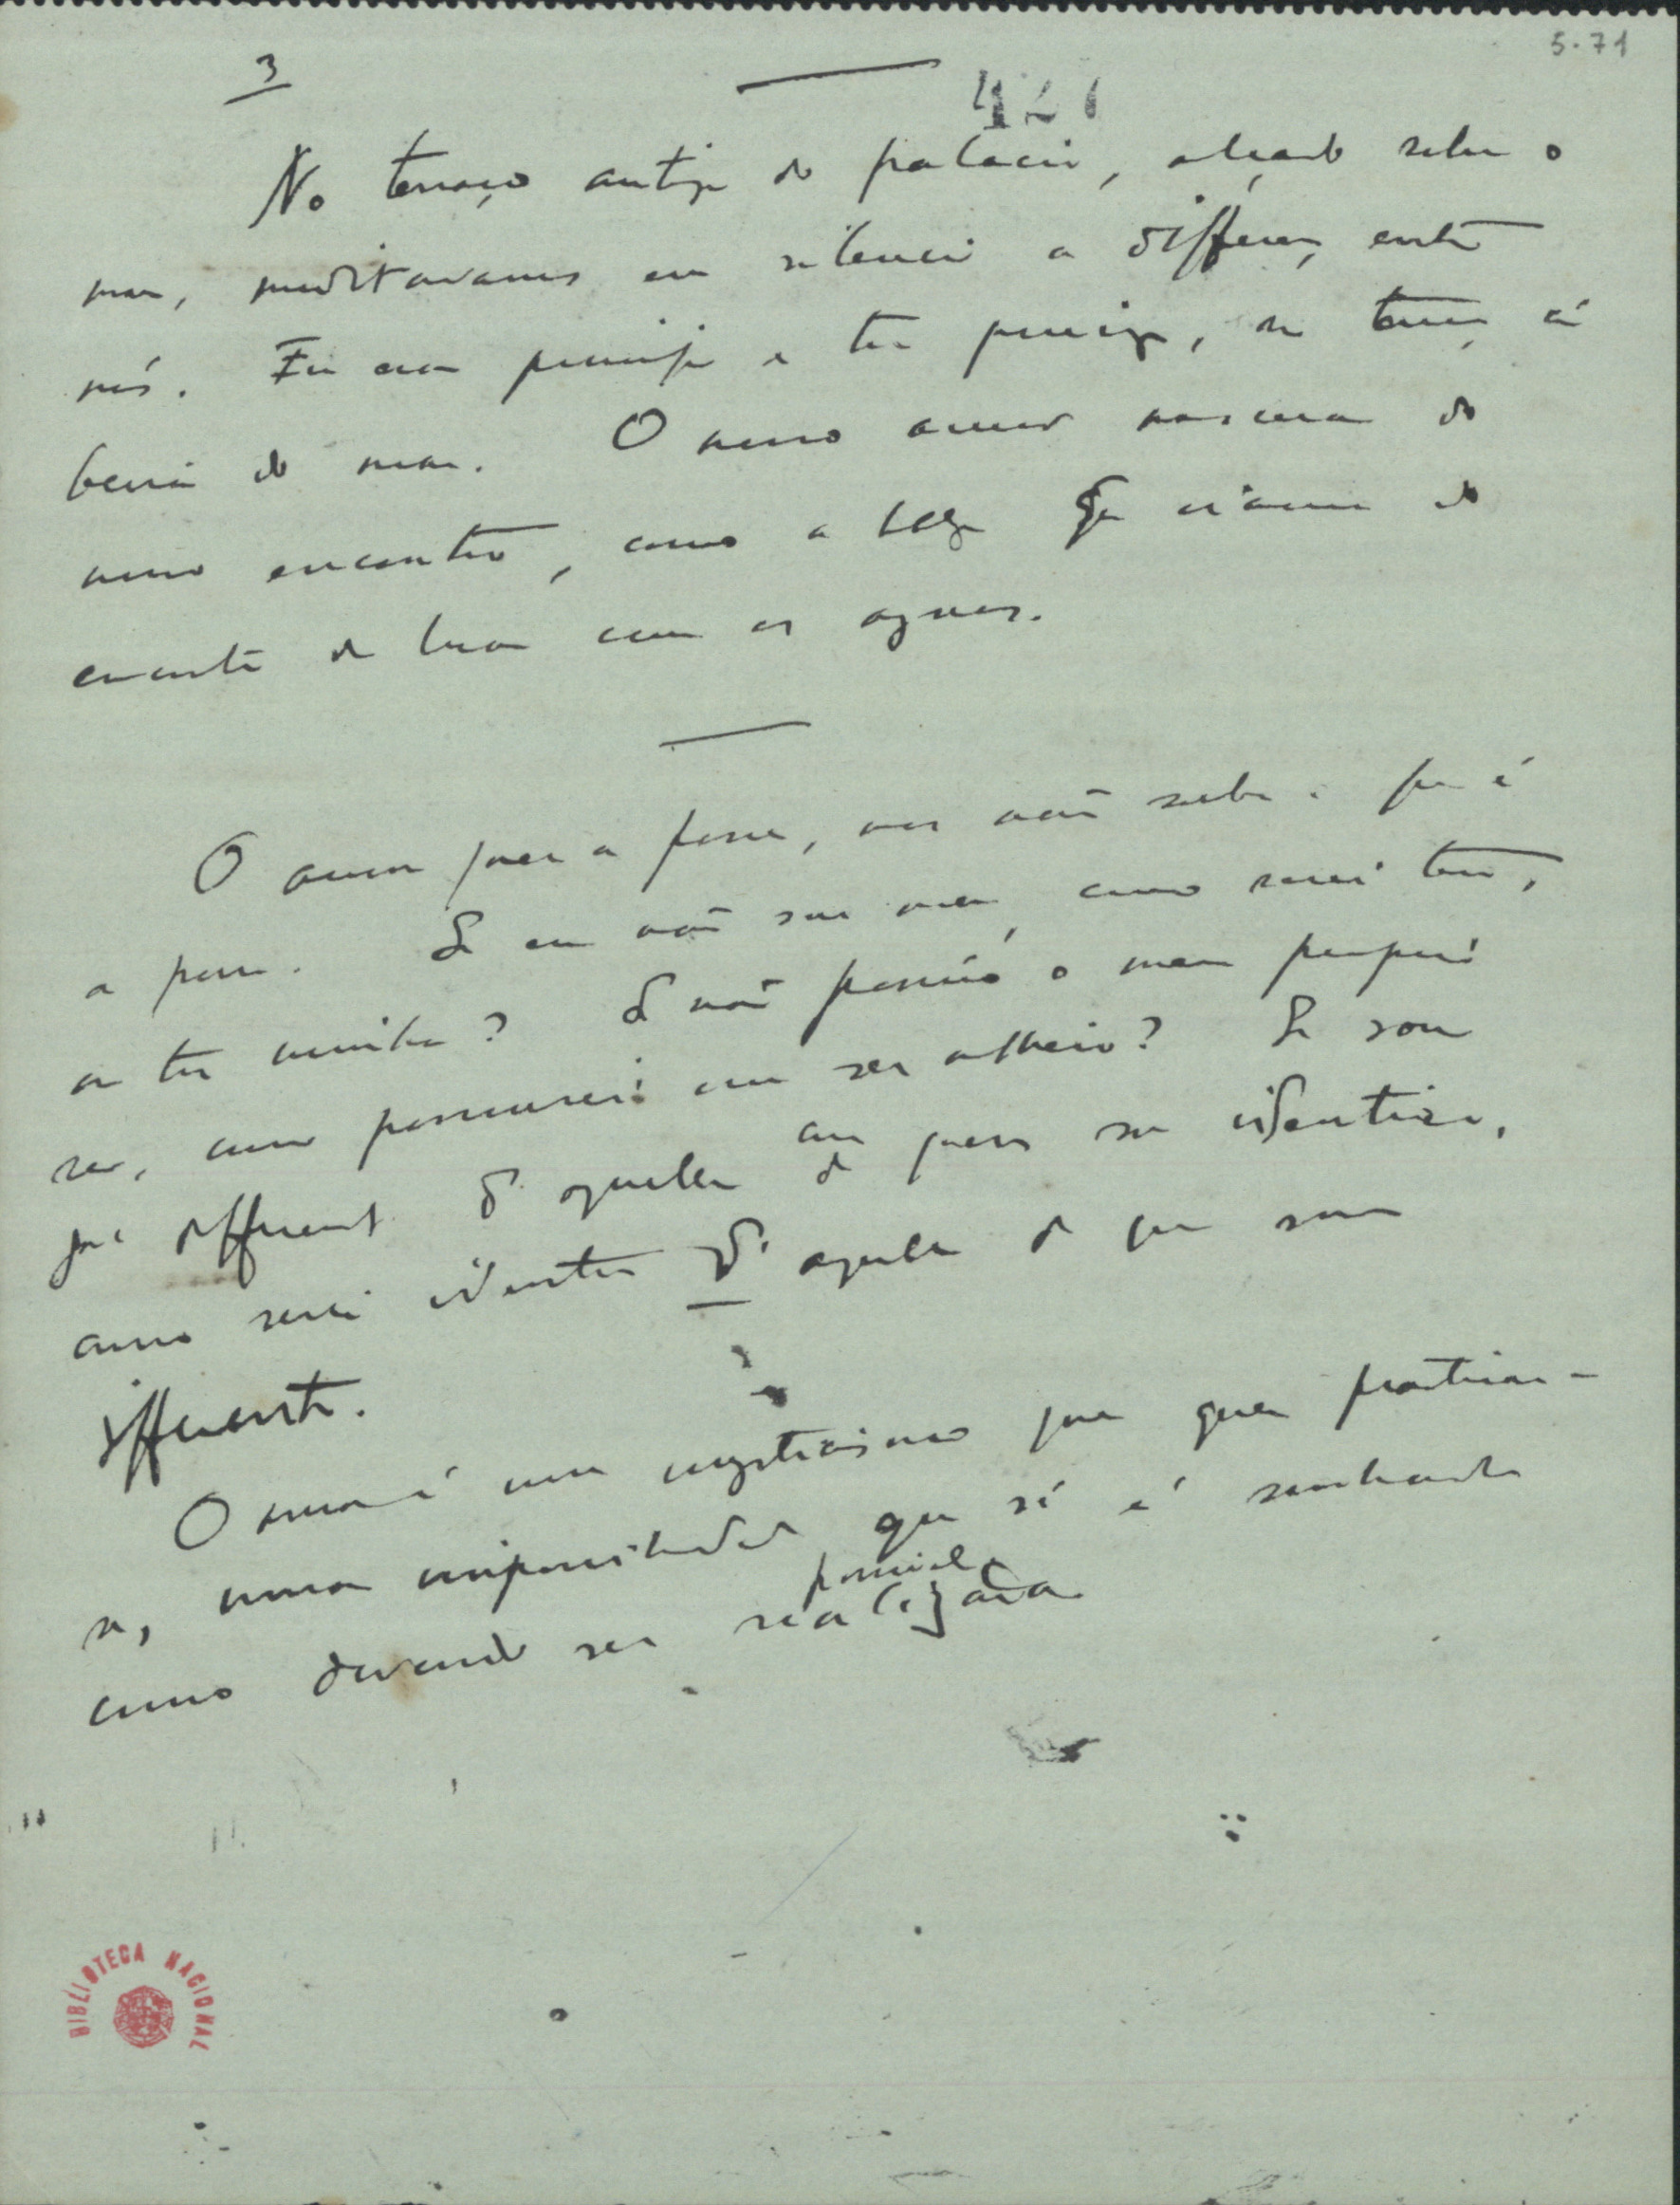 5-71
3
421
No terraço antigo do palacio, alçado sobre o
mar, meditavamos em silencio a differença entre
nós. Eu era principe e tu princeza, no terraço á
beira do mar. O nosso amor nascera do
nosso encontro, como a belleza se creou do
encontro da lua com as aguas.
O amor quer a posse, mas não sabe o que é
a posse. Se eu não sou meu, como serei teu,
ou tu minha? Se não possúo o meu proprio
ser, como possuirei um ser alheio? Se sou
já differente d'aquelle de quem sou identico,
com
como serei identico d'aquelle de quem sou
differente.
O amor é um mysticismo que quer praticar-
se, uma impossibilidade que só é sonhada
possivel
como devendo ser realizada
BIBLIOTECA NACIONAL